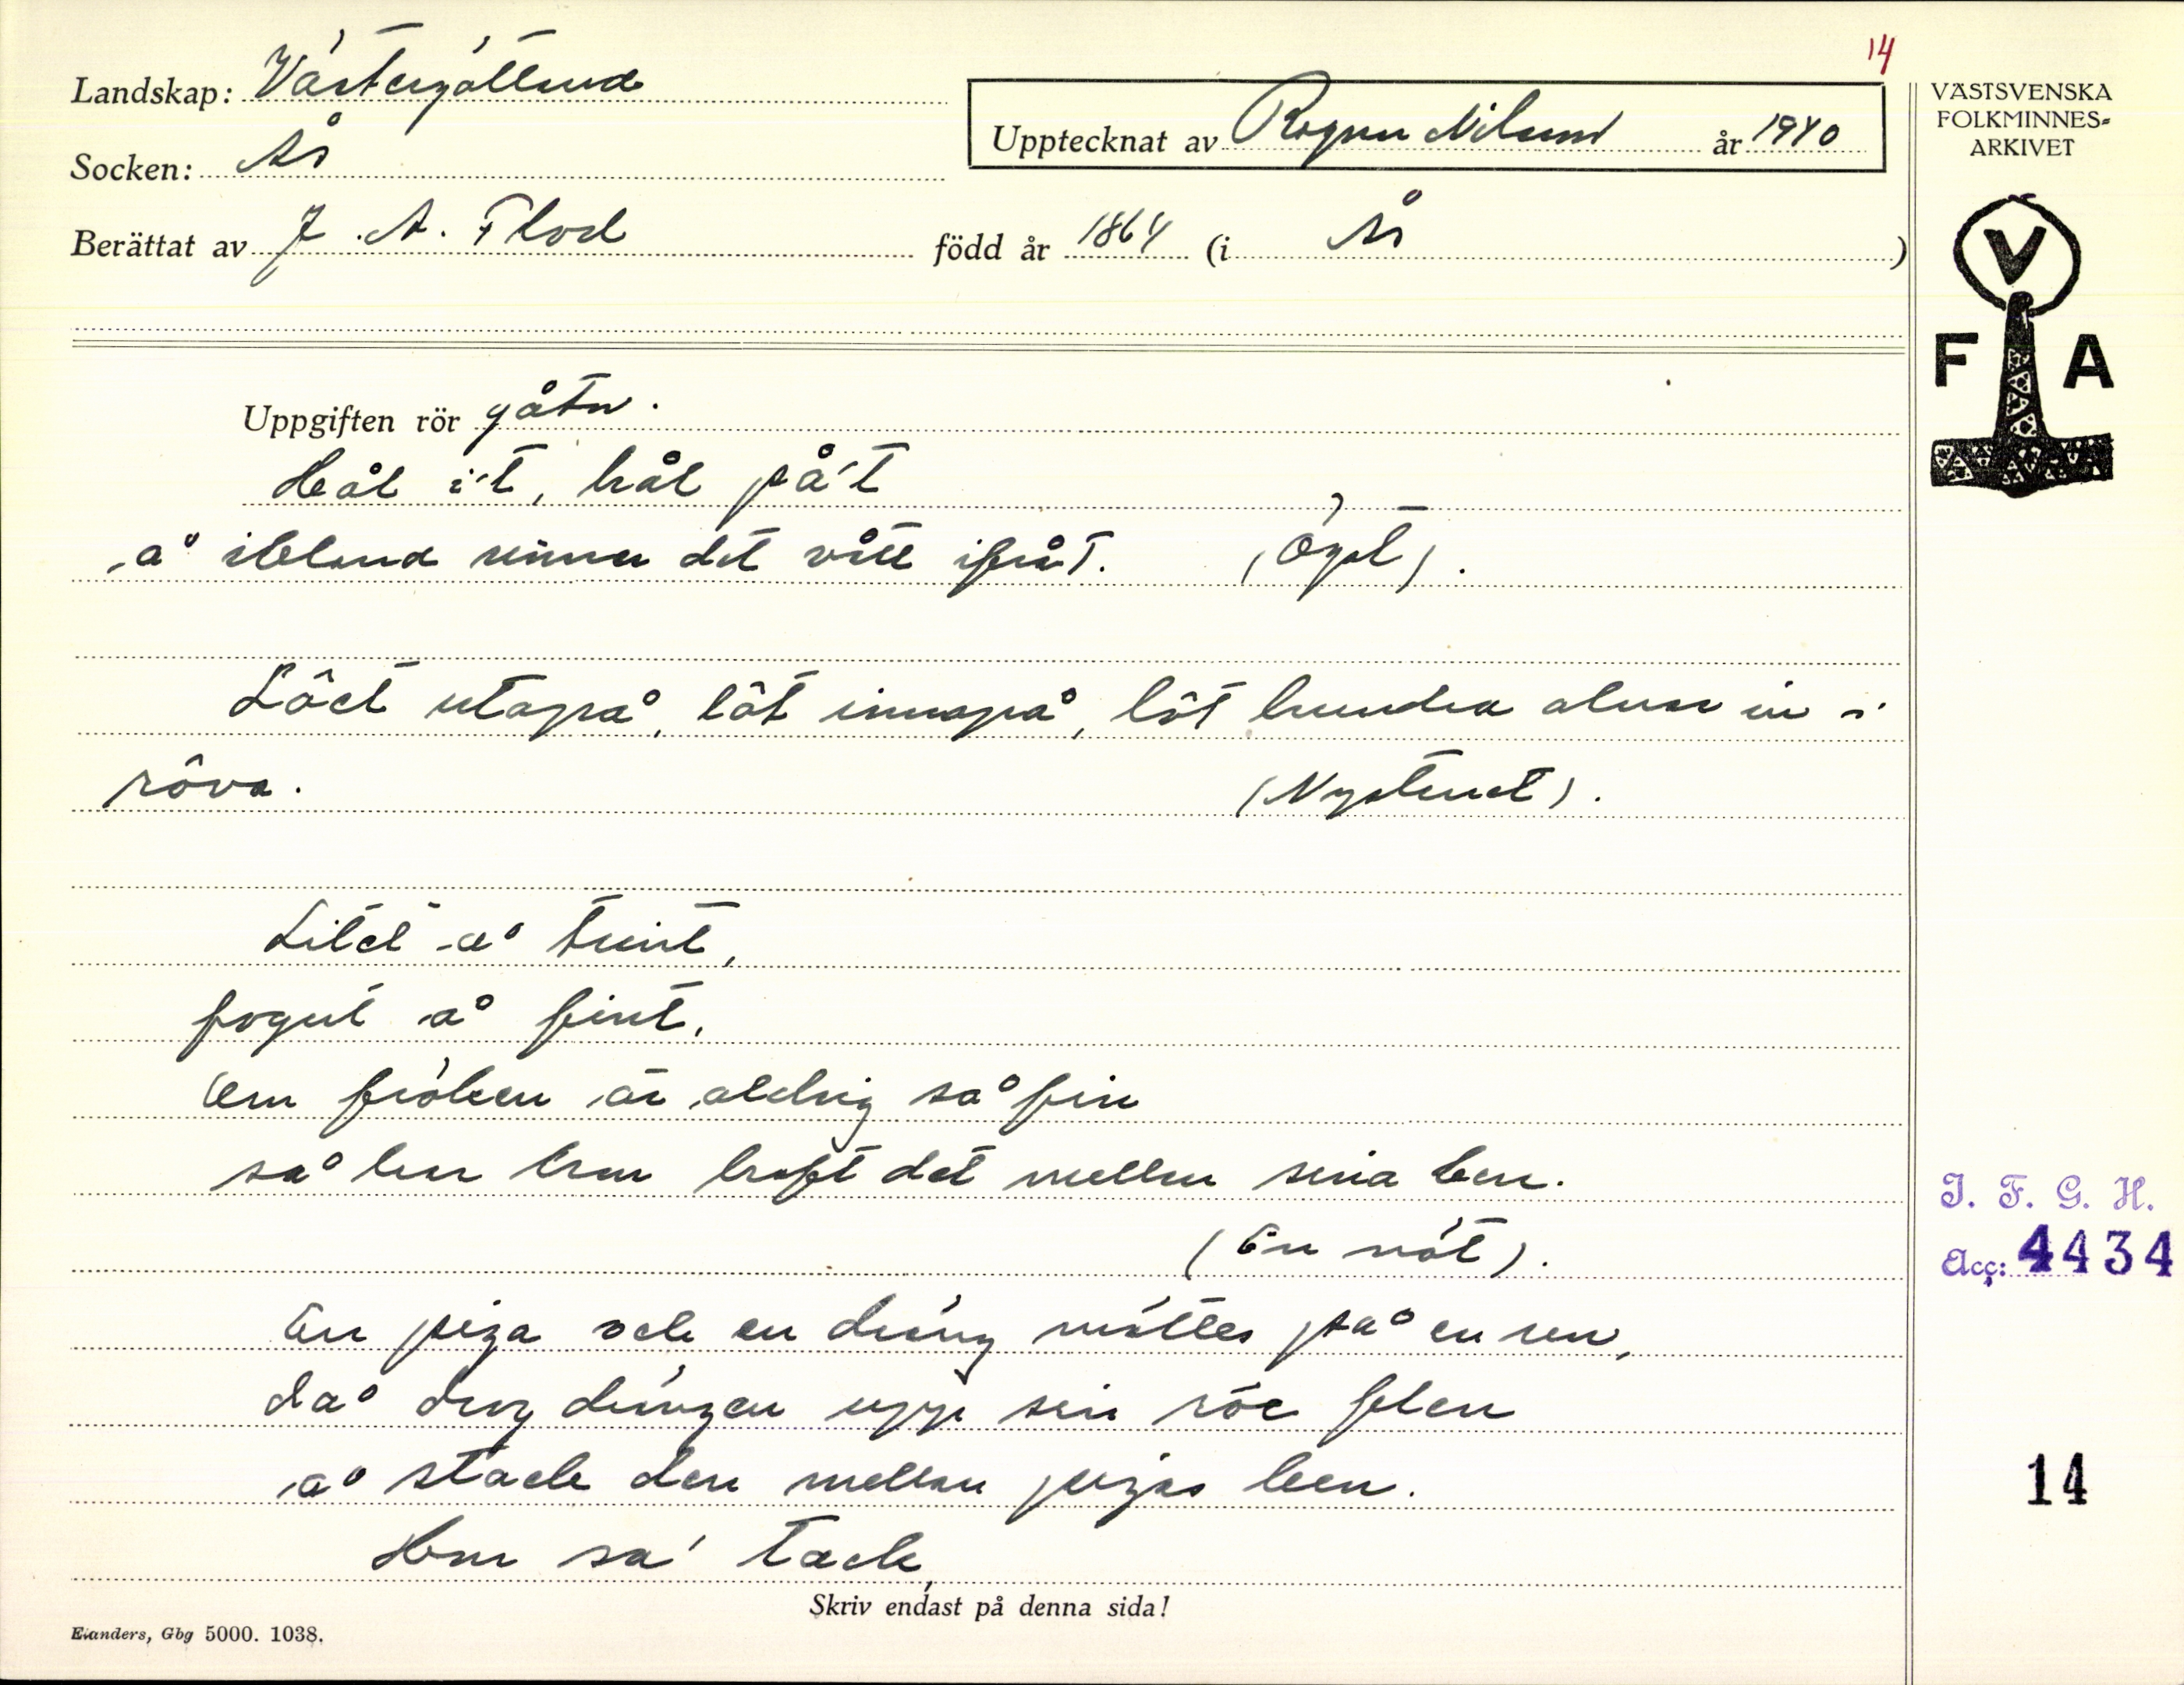 14
Landskap: Västergötland
Upptecknat av Ragnar Nilsson år 1940
VÄSTSVENSKA
FOLKMINNES-
ARKIVET
Socken: Ås
Berättat av J. A. Flod född år 1864 (i Ås)
V
F A
Uppgiften rör gåtor.
Hål i't, hål på't
å ibland rinner det vått ifrå't. (Ögat).
Lôet utapå, lôt innapå, lôt hundra alnar in i
rôva. (Nystanet).
Litet å trint,
fogat å fint,
Om fröken är aldrig så fin
så har hon haft det mellan sina ben.
(En nöt).
En piga och en dräng möttes på en ren,
då drog drängen upp sin röe flen
å stack den mellan pigas ben.
Hon sa' tack,
Skriv endast på denna sida!
Elanders, Gbg 5000. 1038.
I. F. G. H.
Acc: 4434
14